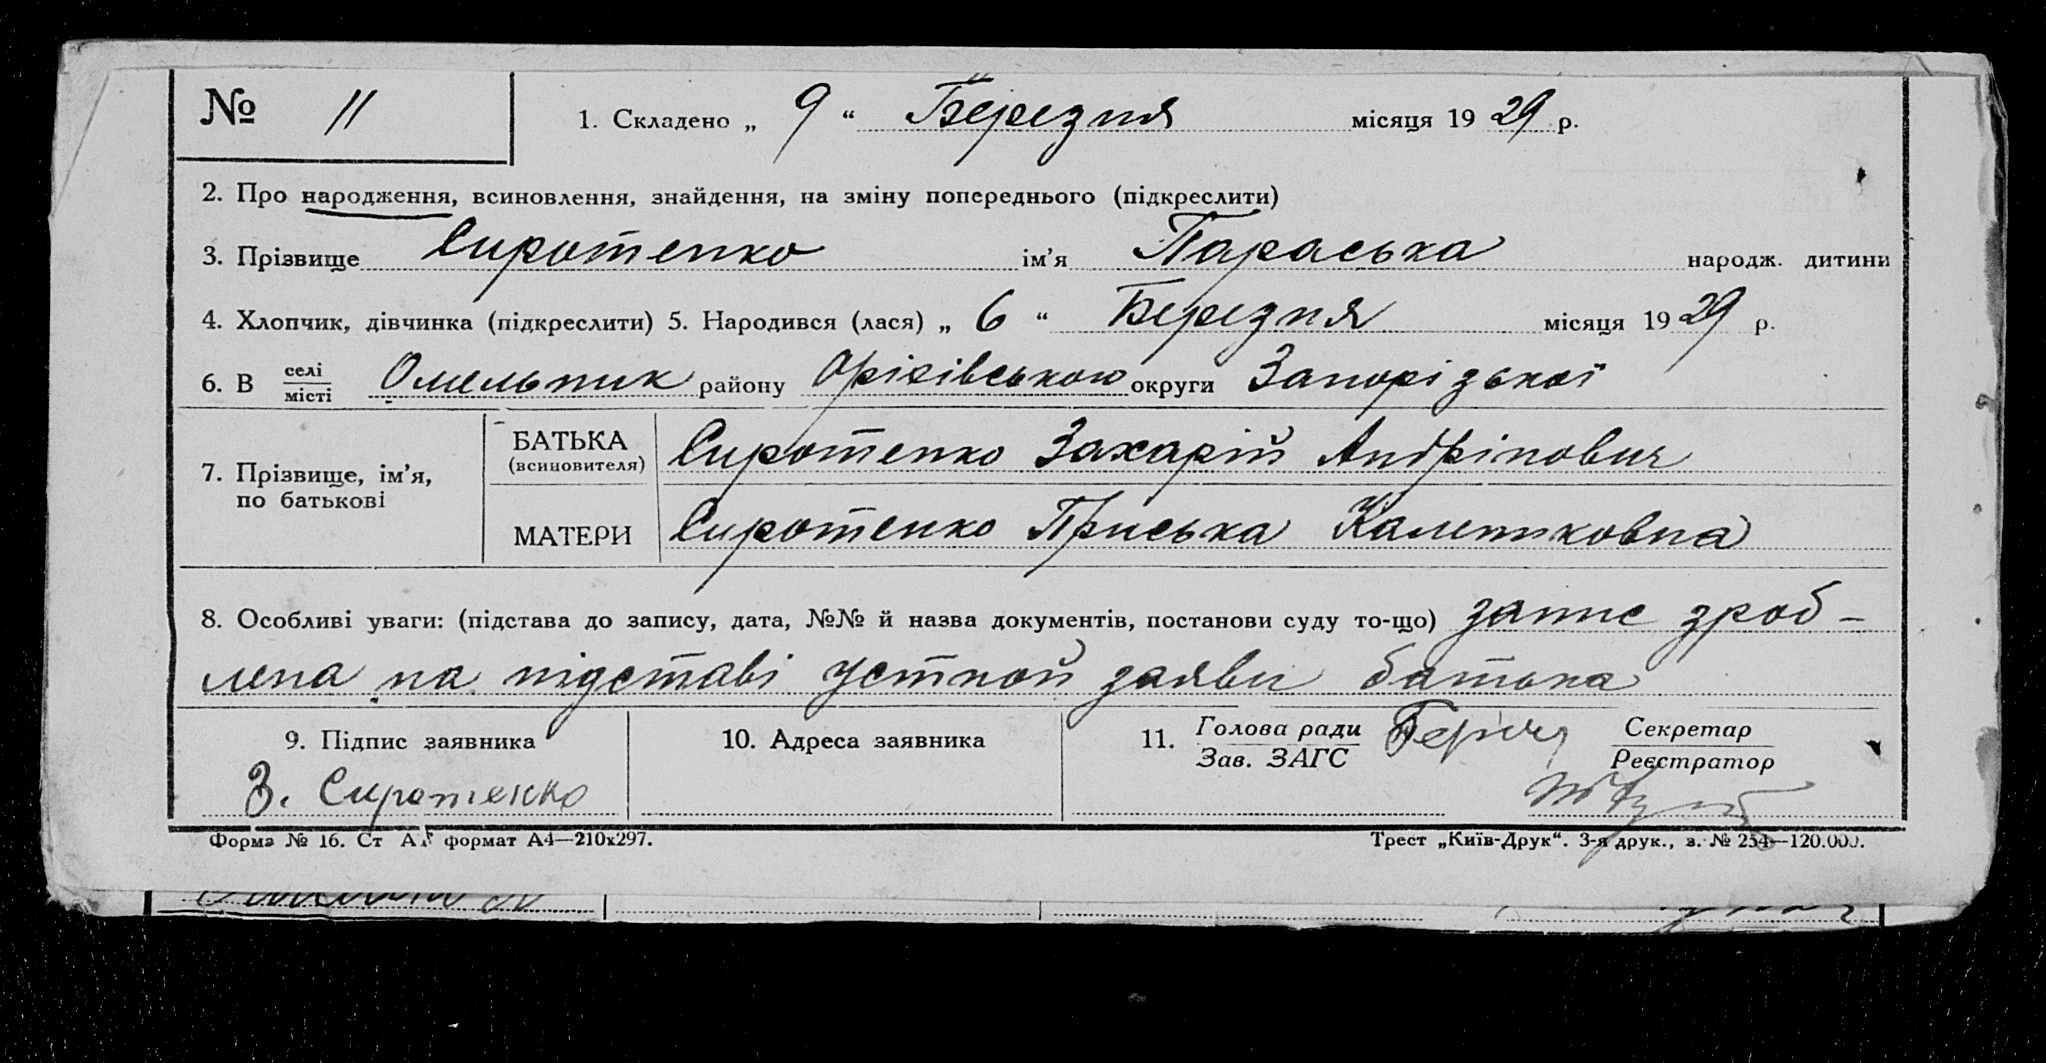 № 11 1. Складено „ 9 “ Березня місяця 19 29 р.
2. Про народження, всиновлення, знайдення, на зміну попереднього (підкреслити)
3. Прізвище Сиротенко ім’я Параська народж. дитини
4. Хлопчик, дівчинка (підкреслити) 5. Народився (лася) „ 6 “ Березня місяця 19 29 р.
6. В селі Омельник району Оріхівського округи Запорізької
місті
7. Прізвище, ім’я, по батькові
БАТЬКА (всиновителя) Сиротенко Захарій Андрінович
МАТЕРИ Сиротенко Приська Калениковна
8. Особливі уваги: (підстава до запису, дата, №№ й назва документів, постанови суду то-що) запис зроб-
лена на підставі устной заяви батька
9. Підпис заявника 10. Адреса заявника 11. Голова ради Секретар
Зав. ЗАГС Реєстратор
З. Сиротенко
Форма № 16. Ст формат А4—210х297. Трест „Київ-Друк“. 3-я друк., з. № 254—120.000.